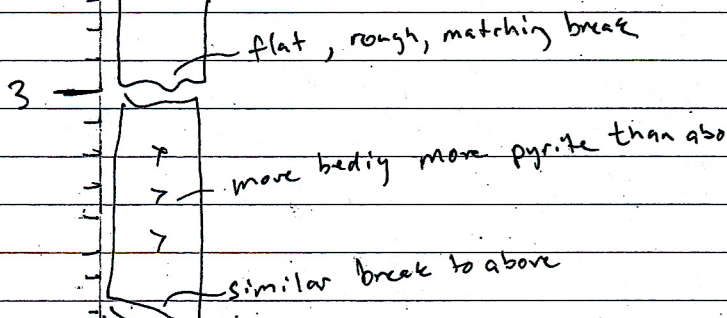 flat, rough, matching break
3
more bediy more pyrite than abo
similar break to above